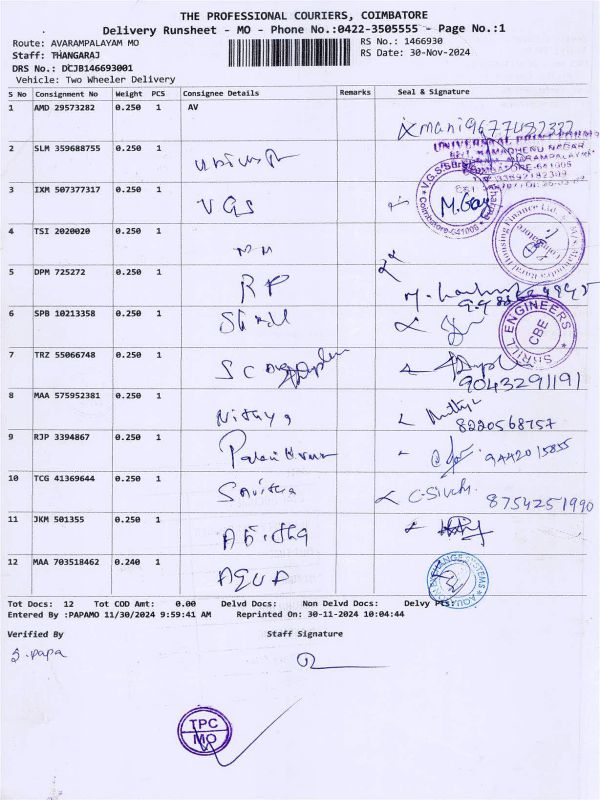 THE PROFESSIONAL COURIERS, COIMBATORE
Delivery Runsheet - MO - Phone No.:0422-3505555 - Page No.:1
Route: AVARAMPALAYAM MO RS No.: 1466930
Staff: THANGARAJ RS Date: 30-Nov-2024
DRS No.: DCJB146693001
Vehicle: Two Wheeler Delivery
S No Consignment No Weight PCS Consignee Details Remarks Seal & Signature
1 AMD 29573282 0.250 1 AV
2 SLM 359688755 0.250 1
3 IXM 507377317 0.250 1 VGS M.Gay
4 TSI 2020020 0.250 1 MM
5 DPM 725272 0.250 1 RP
6 SPB 10213358 0.250 1 SHRILL ENGINEERS CBE
7 TRZ 55066748 0.250 1 9043291191
8 MAA 575952381 0.250 1 Nithya 8220568757
9 RJP 3394867 0.250 1 9442015855
10 TCG 41369644 0.250 1 Savitha 8754251990
11 JKM 501355 0.250 1 Abitha
12 MAA 703518462 0.240 1 AQUA
Tot Docs: 12 Tot COD Amt: 0.00 Delvd Docs: Non Delvd Docs: Delvy Pts:
Entered By :PAPAMO 11/30/2024 9:59:41 AM Reprinted On: 30-11-2024 10:04:44
Verified By Staff Signature
S. papa
TPC
MO